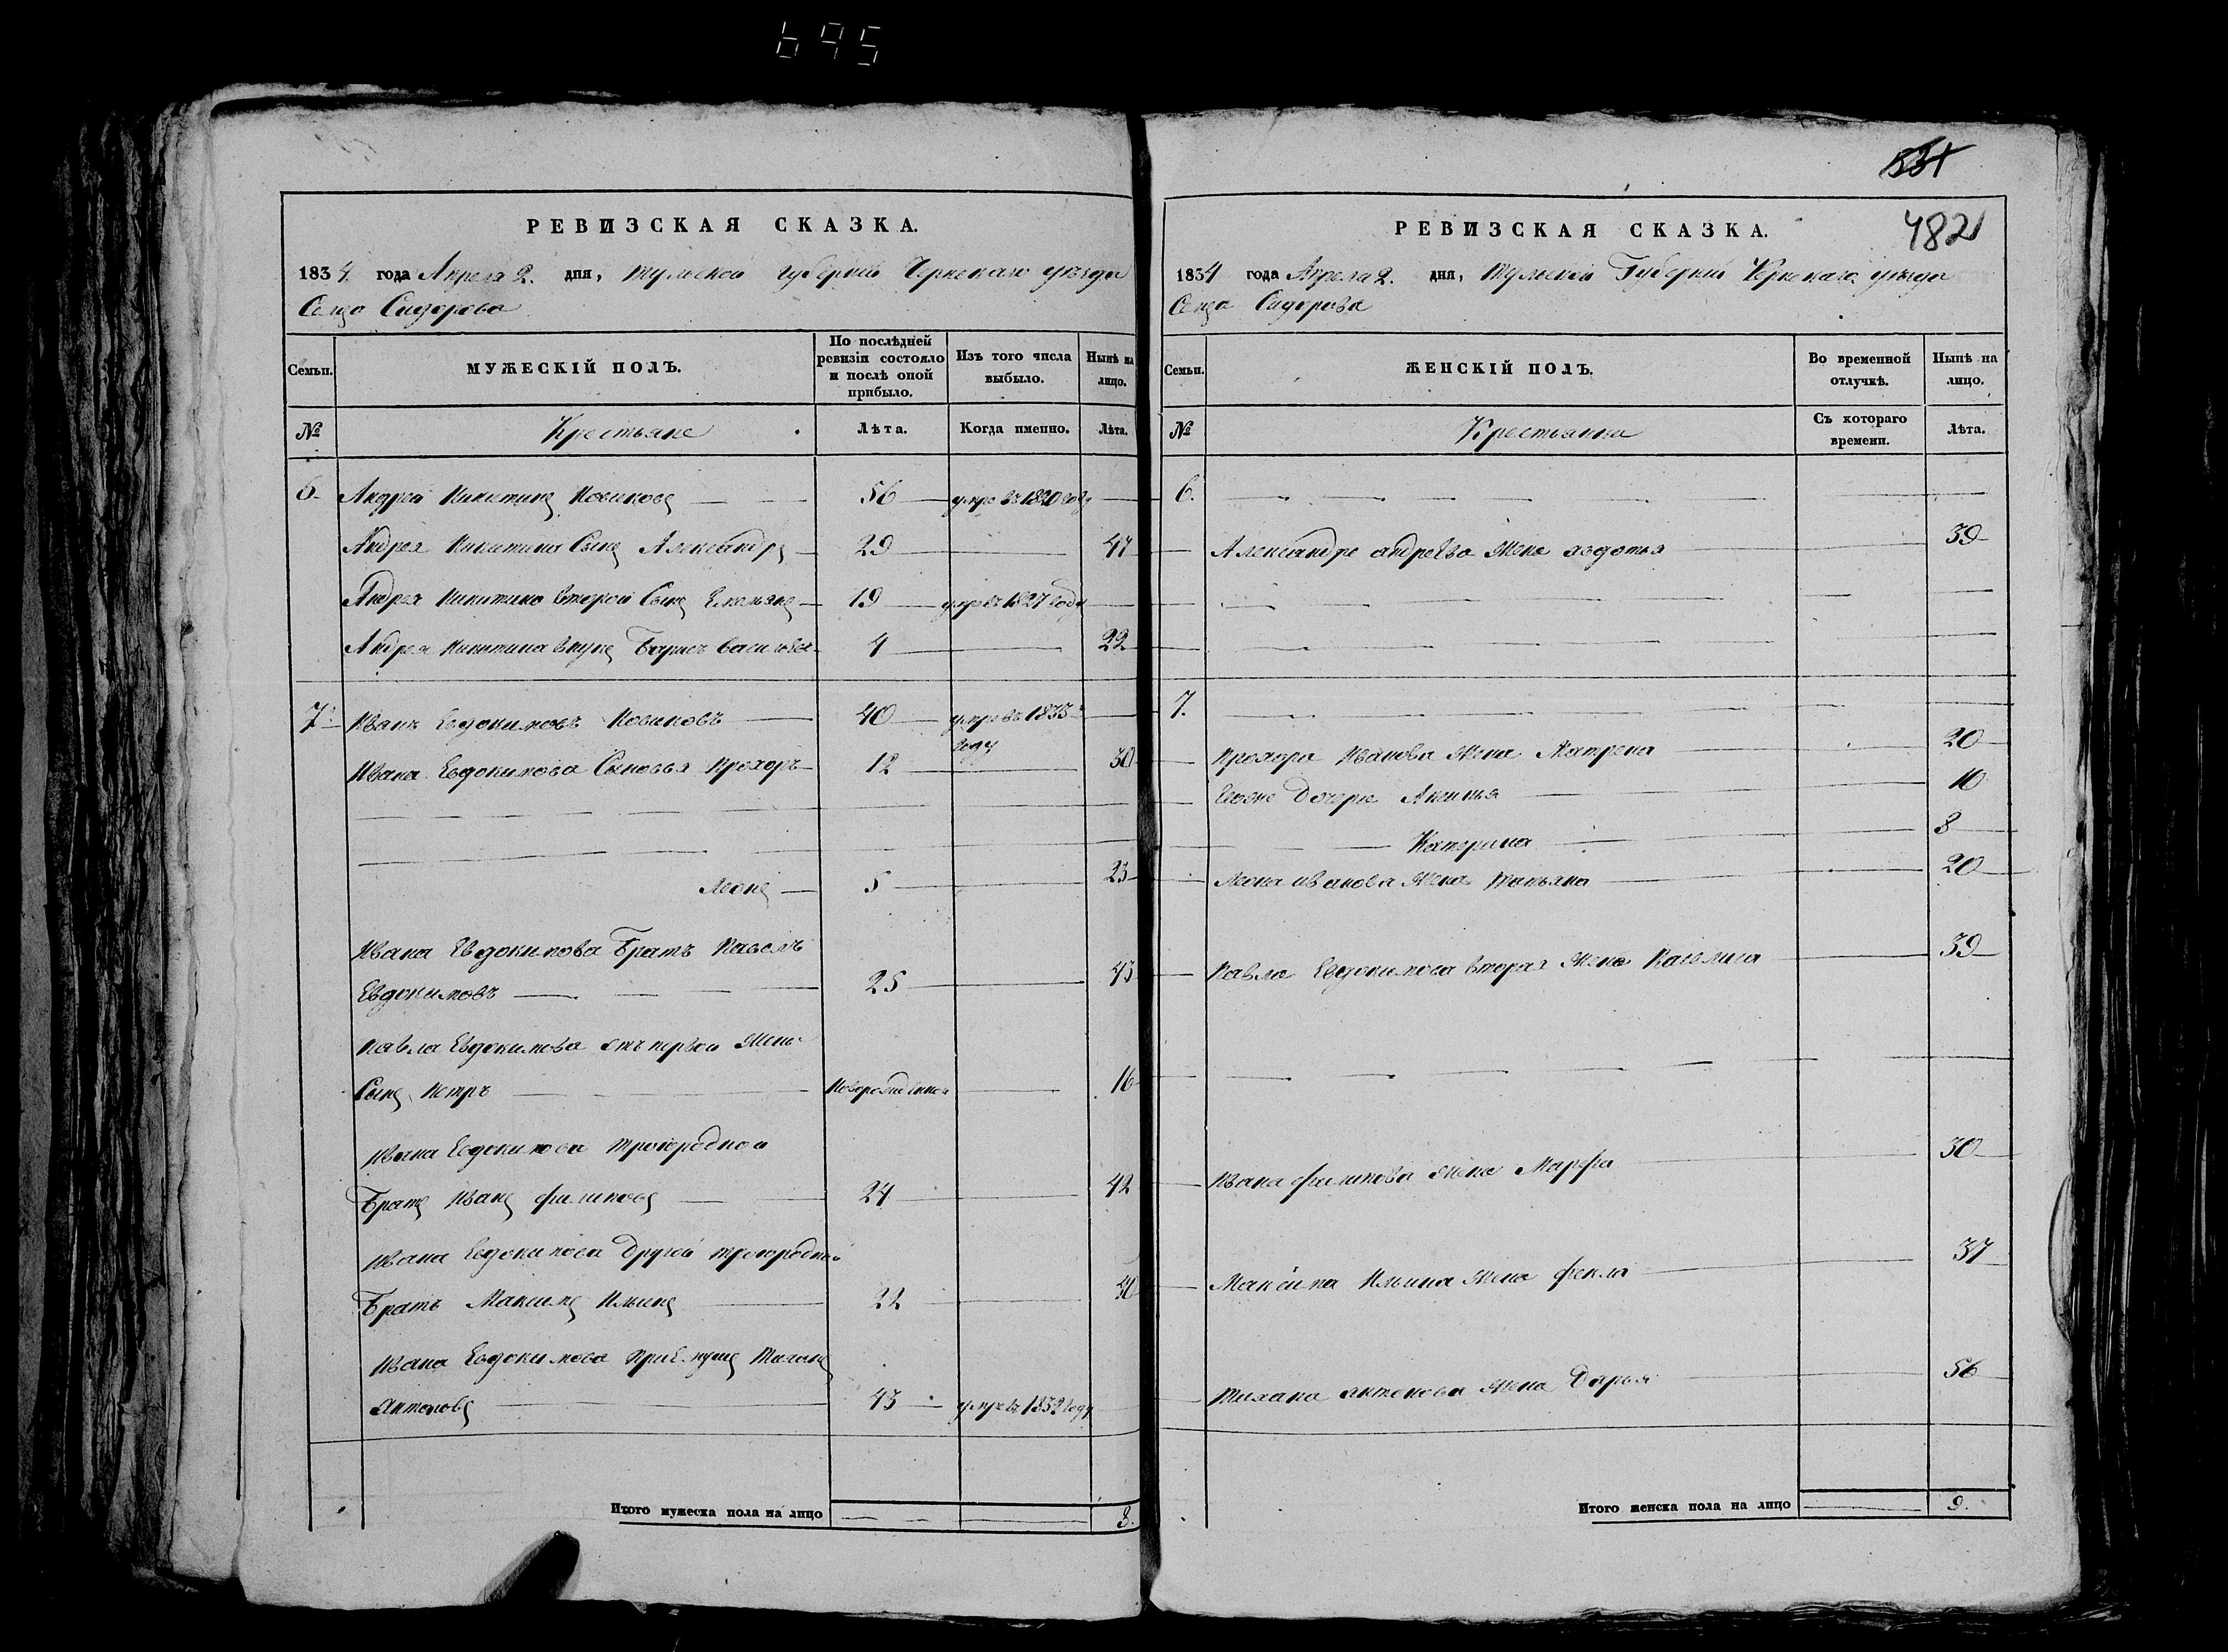 695
РЕВИЗСКАЯ СКАЗКА.
1834 года Апреля 2. дня, Тульской губерніи Чернскаго уѣзда
Сельца Сидорова
Семьи.
МУЖЕСКІЙ ПОЛЪ.
По послѣдней ревизіи состояло и послѣ оной прибыло.
Изъ того числа выбыло.
Нынѣ на лицо.
№
Крестьяне
Лѣта.
Когда именно.
Лѣта.
6. Андрей Никитинъ Новиковъ — 56 — умре въ 1820 году —
Андрея Никитина Сынъ Александръ — 29 — 47
Андрея Никитина второй Сынъ Емельянъ — 19 — умре въ 1827 году —
Андрея Никитина внукъ Борисъ васильевъ — 4 — 22
7. Иванъ Евдокимовъ Новиковъ — 40 — умре въ 1833 —
году
Ивана Евдокимова Сыновья Прохоръ — 12 — 30
Леонъ — 5 — 23
Ивана Евдокимова Братъ Павелъ
Евдокимовъ — 25 — 43
Павла Евдокимова отъ первой жены
Сынъ Петръ — новорожденной — 16
Ивана Евдокимова троюродной
Братъ Иванъ филиповъ — 24 — 42
Ивана Евдокимова другой троюродной
Братъ Максимъ Ильинъ — 22 — 40
Ивана Евдокимова приемышъ Тихонъ
Антоновъ — 43 — умре въ 1832 году
Итого мужеска пола на лицо — — 8.
531
482
РЕВИЗСКАЯ СКАЗКА.
1834 года Апреля 2. дня, Тульской Губерніи Чернскаго уѣзда
Сельца Сидорова
Семьи.
ЖЕНСКІЙ ПОЛЪ.
Во временной отлучкѣ.
Нынѣ на лицо.
№
Крестьянки
Съ котораго времени.
Лѣта.
6. —
Александра андреева жена авдотья — 39
7. —
Прохора Иванова жена Матрена — 20
Евоне дочери Аксинья — 10
Катерина — 8
Леона иванова жена Татьяна — 20
Павла Евдокимова вторая жена — 39
Ивана филипова жена Марфа — 30
Максима Ильина жена фекла — 37
Тихона антонова жена Дарья — 56
Итого женска пола на лицо — 9.